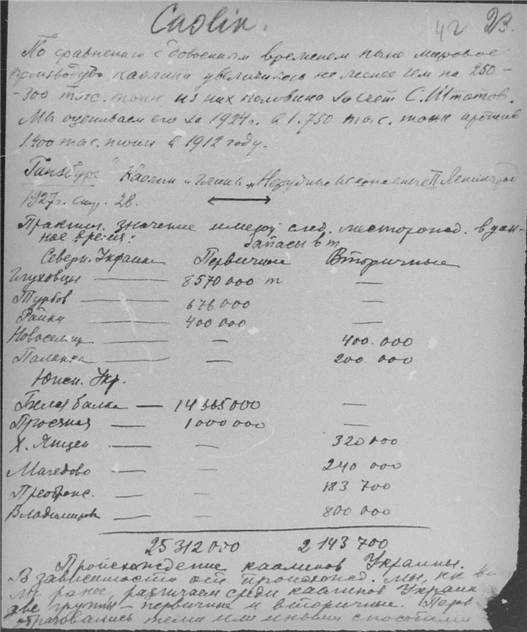 Caolin.
42 23.
По сравнению с довоенным временем ныне мировое
производство каолина увеличилось не менее чем на 250-
-300 тыс. тонн, из них половина за счет С. Штатов.
Мы оцениваем его за 1924 г. в 1.750 тыс. тонн против
1.400 тыс. тонн в 1912 году.
Гинзбург "Каолин и глины" Нерудные ископаемые II Ленинград
1927 г. стр. 28.
Практич. значение имеют след. месторожд. в дан-
ное время:
Запасы в т
Северн. Украина Первичные Вторичные
Глуховцы — 8570000 т —
Турбов — 676000 —
Райки — 400000 —
Новоселиц — — 400.000
Поленка — — 200 000
Южн. Укр.
Белая балка — 14 665000 —
Просяная — 1000000 —
Х. Янцев — — 320000
Магедово — — 240 000
Преображ. — — 183 700
Владимиров — — 800 000
25312000 2 143 700
Происхождение каолинов Украины.
В зависимости от происхожд. мы, как
ранее, различаем среди каолинов Украины
две группы – первичные и вторичные. Перв
образовались теми или иными способами